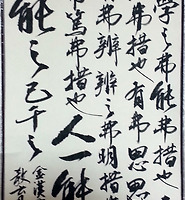 學之弗能弗措也
弗措也有弗思思
弗辨辨之弗明弗措
弗篤弗措也人一能
能之己千之